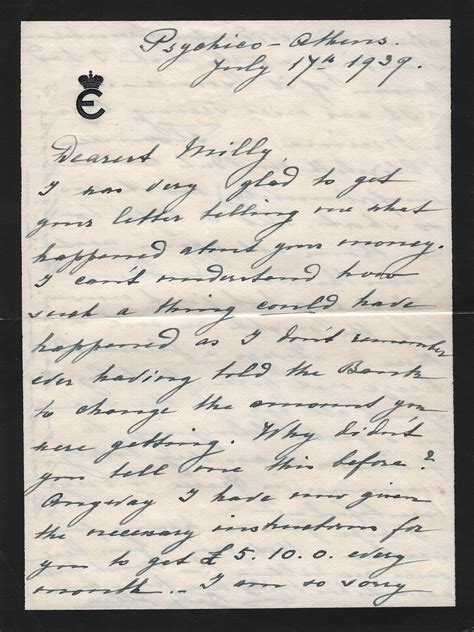 Psychico - Athens.
July 17th 1939.
E
Dearest Milly,
I was very glad to get
your letter telling me what
happened about your money.
I can't understand how
such a thing could have
happened as I don't remember
ever having told the Bank
to change the amount you
were getting. Why didn't
you tell me this before?
Anyway I have now given
the necessary instructions for
you to get £5.10.0. every
month... I am so sorry